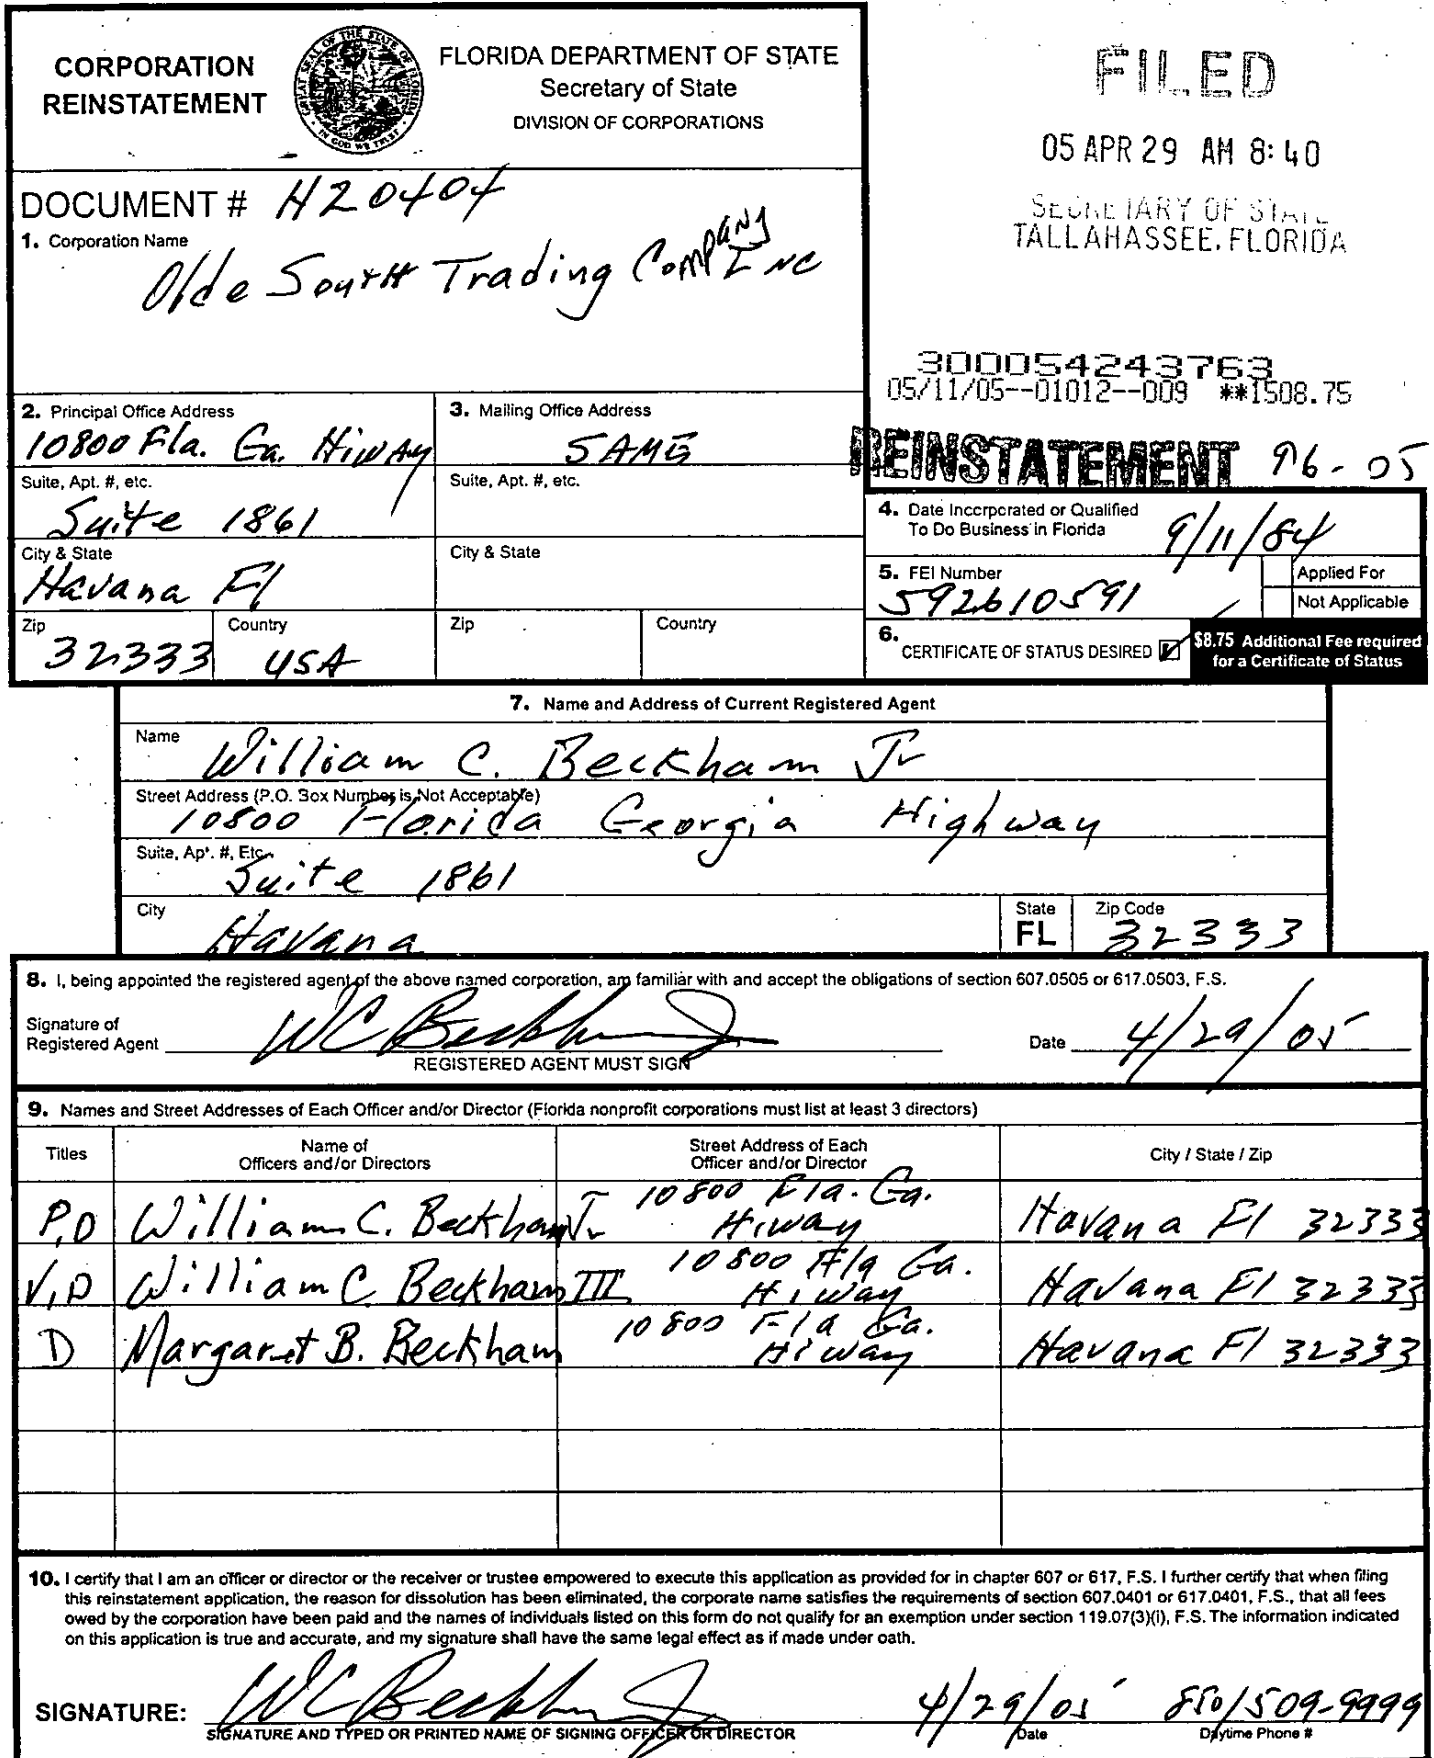 CORPORATION
REINSTATEMENT
FLORIDA DEPARTMENT OF STATE
Secretary of State
DIVISION OF CORPORATIONS
FILED
05 APR 29 AM 8:40
SECRETARY OF STATE
TALLAHASSEE, FLORIDA
DOCUMENT # H20404
1. Corporation Name
Olde South Trading Company Inc
300054243763
05/11/05--01012--009 **1508.75
REINSTATEMENT 96-05
2. Principal Office Address
10800 Fla. Ga. Hiway
3. Mailing Office Address
SAME
Suite, Apt. #, etc.
Suite 1861
Suite, Apt. #, etc.
City & State
Havana Fl
City & State
Zip
32333
Country
USA
Zip
Country
4. Date Incorporated or Qualified
To Do Business in Florida
9/11/84
5. FEI Number
592610591
Applied For
Not Applicable
6. CERTIFICATE OF STATUS DESIRED
$8.75 Additional Fee required
for a Certificate of Status
7. Name and Address of Current Registered Agent
Name
William C. Beckham Jr
Street Address (P.O. Box Number is Not Acceptable)
10800 Florida Georgia Highway
Suite, Apt. #, Etc.
Suite 1861
City
Havana
State
FL
Zip Code
32333
8. I, being appointed the registered agent of the above named corporation, am familiar with and accept the obligations of section 607.0505 or 617.0503, F.S.
Signature of
Registered Agent
WC Beckham Jr
REGISTERED AGENT MUST SIGN
Date 4/29/05
9. Names and Street Addresses of Each Officer and/or Director (Florida nonprofit corporations must list at least 3 directors)
Titles
Name of
Officers and/or Directors
Street Address of Each
Officer and/or Director
City / State / Zip
P,D William C. Beckham Jr 10800 Fla. Ga.
Hiway
Havana Fl 32333
V,D William C Beckham III 10800 Fla Ga.
Hiway
Havana Fl 32333
D Margaret B. Beckham 10800 Fla Ga.
Hiway
Havana Fl 32333
10. I certify that I am an officer or director or the receiver or trustee empowered to execute this application as provided for in chapter 607 or 617, F.S. I further certify that when filing
this reinstatement application, the reason for dissolution has been eliminated, the corporate name satisfies the requirements of section 607.0401 or 617.0401, F.S., that all fees
owed by the corporation have been paid and the names of individuals listed on this form do not qualify for an exemption under section 119.07(3)(i), F.S. The information indicated
on this application is true and accurate, and my signature shall have the same legal effect as if made under oath.
SIGNATURE: WC Beckham Jr 4/29/05 850/509-9999
SIGNATURE AND TYPED OR PRINTED NAME OF SIGNING OFFICER OR DIRECTOR
Date
Daytime Phone #